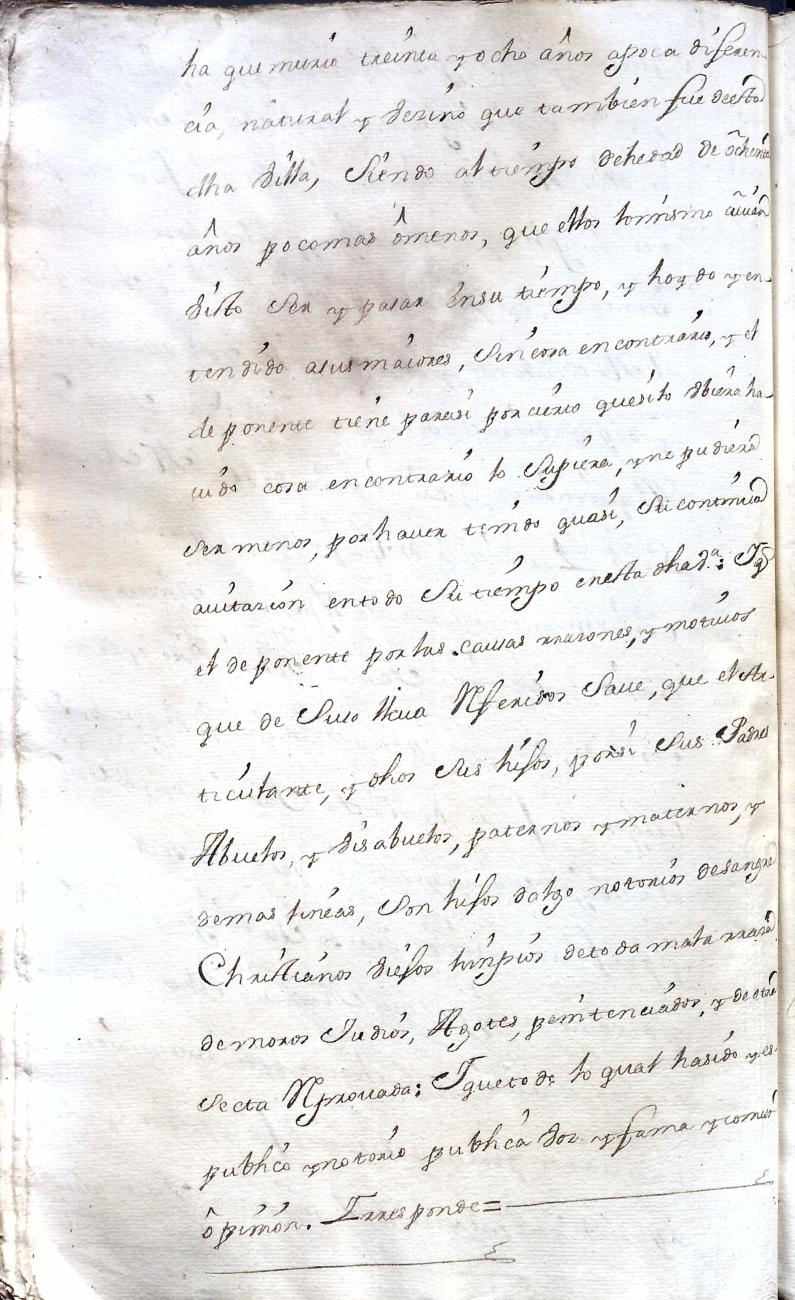 ha que murio treinta y ocho años apoca diferen-
cia, natural y Vezino que tambien fue deesta
dha Villa, Siendo al tiempo dehedad de ochenta
años pocomas ômenos, que ellos lomismo avian
Visto Ser y pasar ensu tiempo, y hoydo y en-
tendido asus maiores, Sincosa encontrario, y el
deponente tiene parasi por cierto quesilo Vbiera ha-
vido cosa encontrario lo Supiera, yno pudiera
Ser menos, por haver tenido quasi, Su continua
avitazion entodo Su tiempo enesta dha Va: Yq
el deponente por las causas rrazones, y motivos
que de Suso lleua Rferidos Save, que el Ar-
ticulante, y dhos Sus hijos, porsi Sus Padres
Abuelos, y Visabuelos, paternos y maternos, y
demas lineas, Son hijos dalgo notorios desangre
Christianos Viejos limpios detoda mala rraza
demoros Judios, Agotes, penitenciados, y deotra
Secta Rprovada: Yquetodo lo qual hasido yes
publico ynotorio publica Voz y fama y comun
ôpinion. Yrresponde=